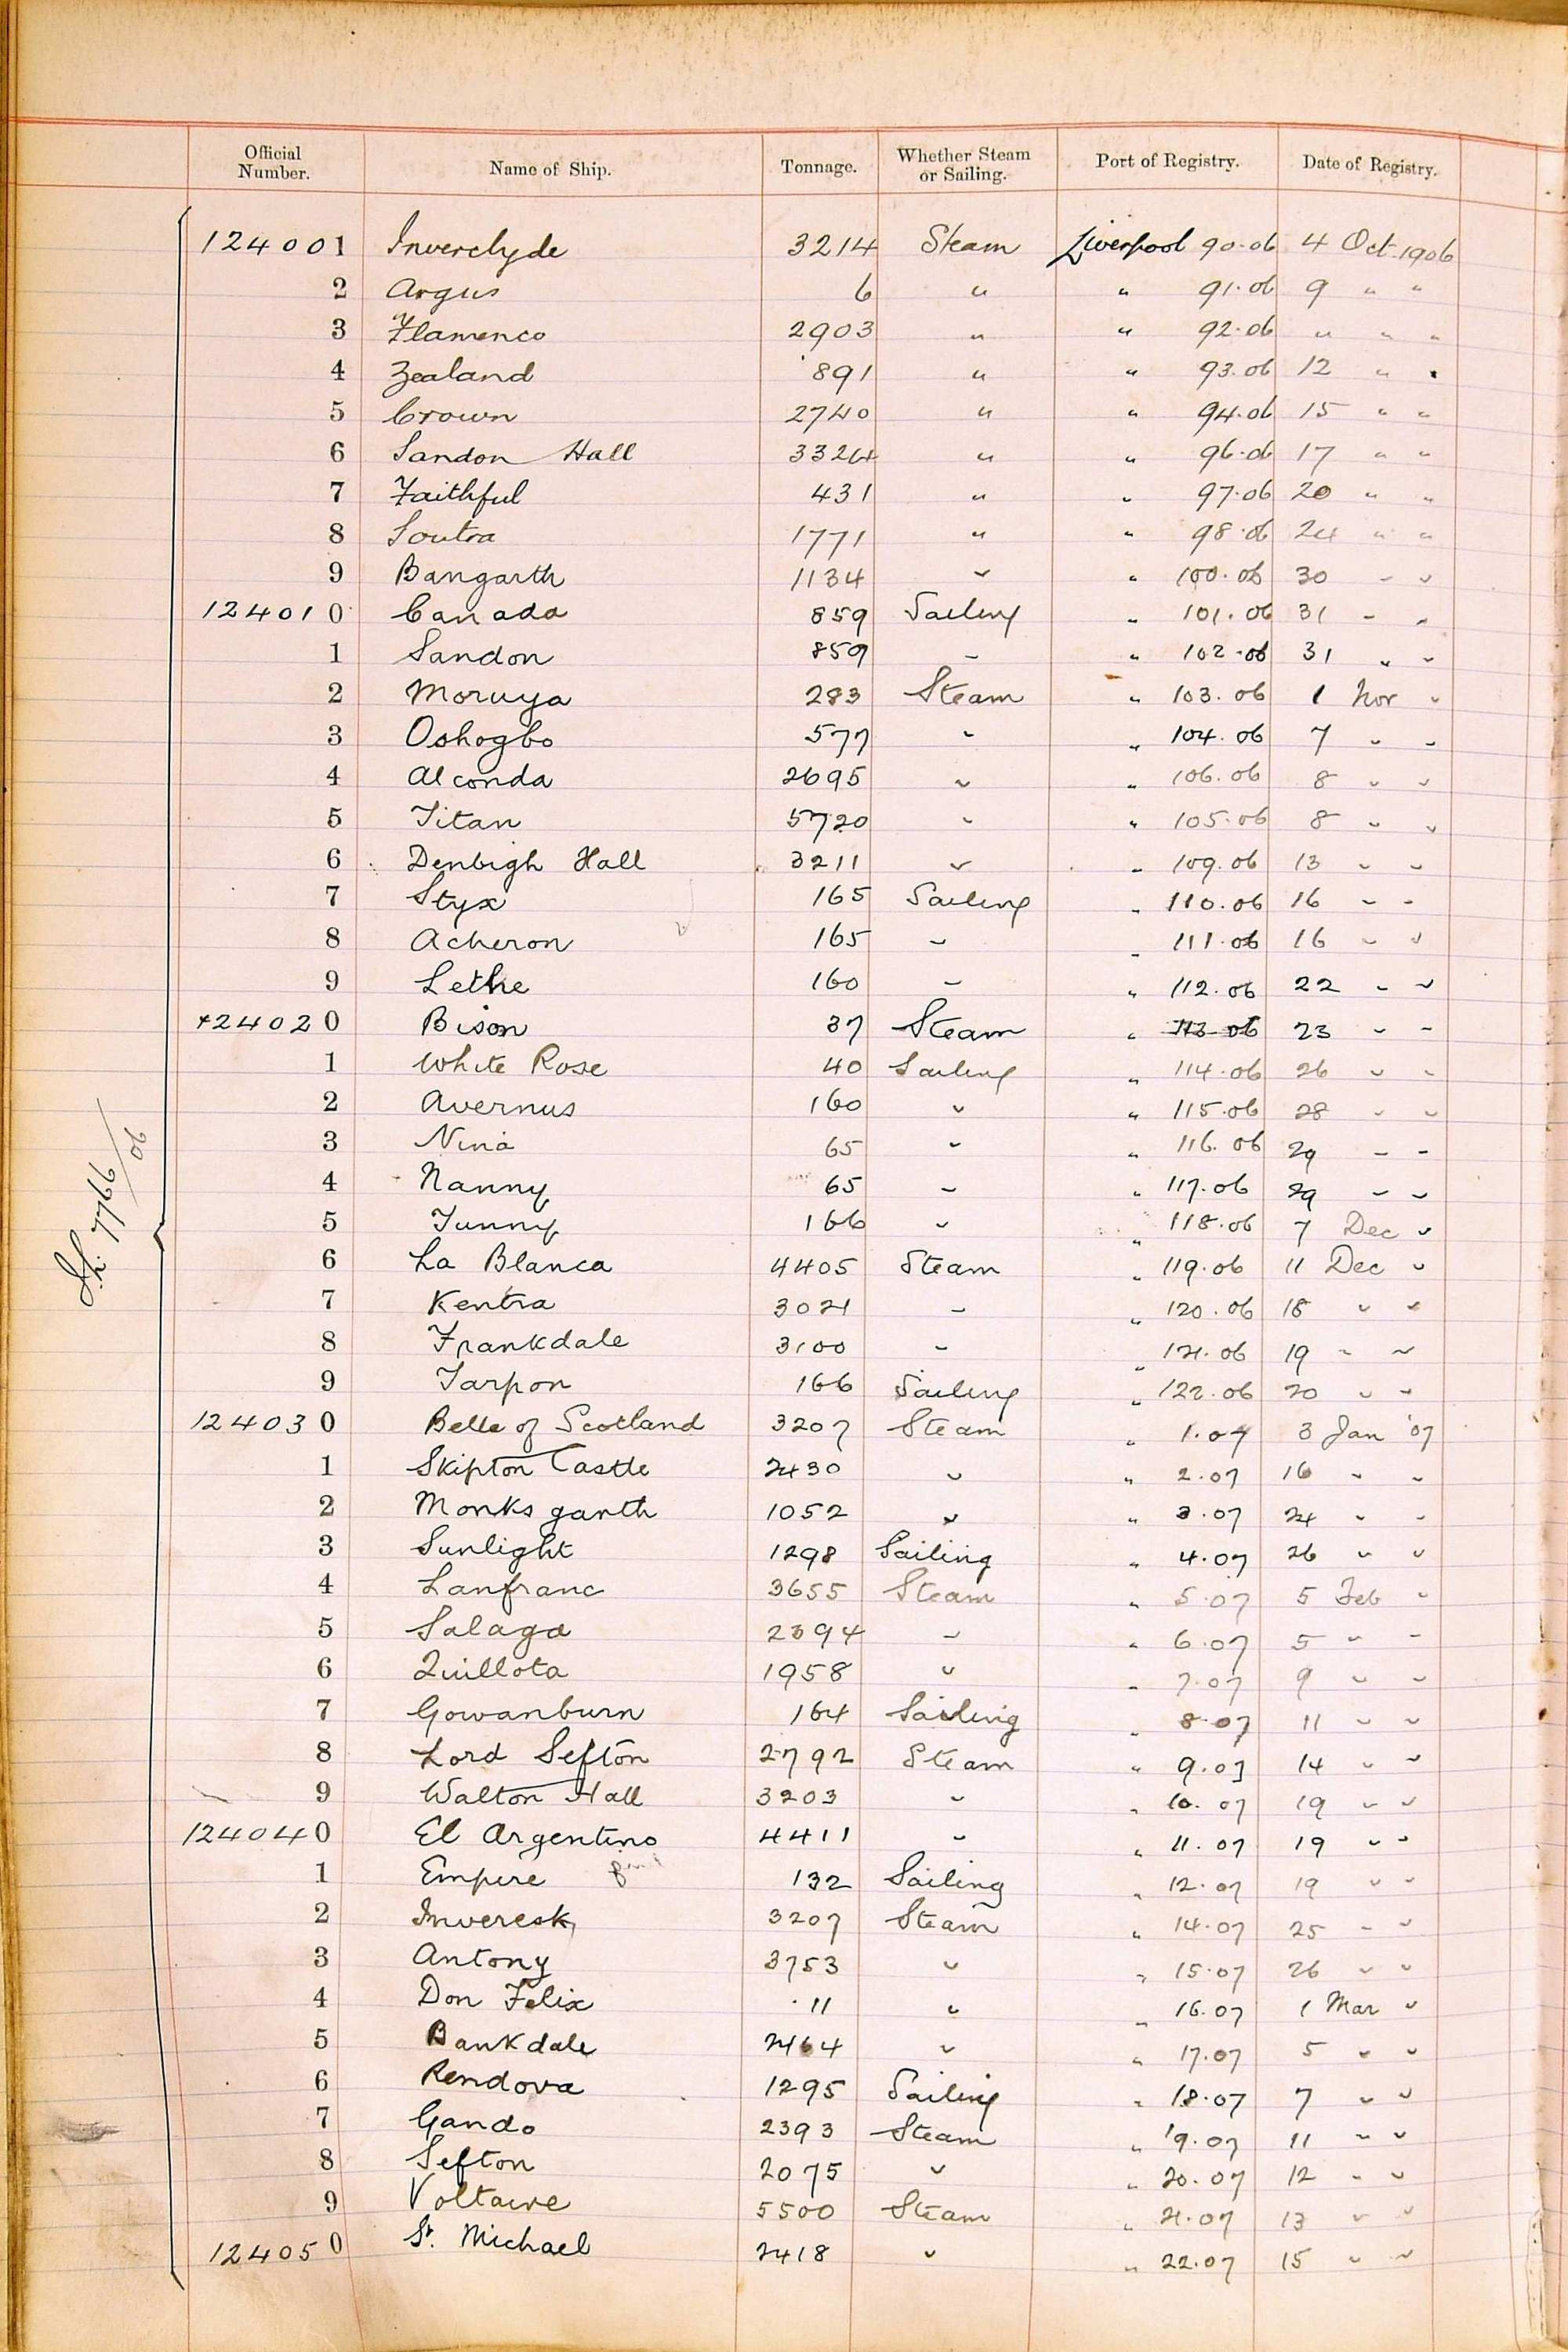 Official Number. Name of Ship. Tonnage. Whether Steam or Sailing. Port of Registry. Date of Registry.
124001 Inverclyde 3214 Steam Liverpool 90.06 4 Oct. 1906
2 Argus 6 " " 91.06 9 " "
3 Flamenco 2903 " " 92.06 " " "
4 Zealand 891 " " 93.06 12 " "
5 Crown 2740 " " 94.06 15 " "
6 Sandon Hall 3324 " " 96.06 17 " "
7 Faithful 431 " " 97.06 20 " "
8 Soutra 1771 " " 98.06 24 " "
9 Bangarth 1134 " " 100.06 30 " "
124010 Canada 859 Sailing " 101.06 31 " "
1 Sandon 859 " " 102.06 31 " "
2 Moruya 283 Steam " 103.06 1 Nov "
3 Oshogbo 577 " " 104.06 7 " "
4 Alconda 2695 " " 106.06 8 " "
5 Titan 5720 " " 105.06 8 " "
6 Denbigh Hall 3211 " " 109.06 13 " "
7 Styx 165 Sailing " 110.06 16 " "
8 Acheron 165 " " 111.06 16 " "
9 Lethe 160 " " 112.06 22 " "
124020 Bison 37 Steam " 113.06 23 " "
1 White Rose 40 Sailing " 114.06 26 " "
2 Avernus 160 " " 115.06 28 " "
3 Nina 65 " " 116.06 29 " "
4 Nanny 65 " " 117.06 29 " "
5 Tunny 166 " " 118.06 7 Dec "
6 La Blanca 4405 Steam " 119.06 11 Dec "
7 Kentra 3021 " " 120.06 18 " "
8 Frankdale 3100 " " 121.06 19 " "
9 Tarpon 166 Sailing " 122.06 20 " "
124030 Belle of Scotland 3207 Steam " 1.07 3 Jan '07
1 Skipton Castle 2430 " " 2.07 16 " "
2 Monksgarth 1052 " " 3.07 24 " "
3 Sunlight 1298 Sailing " 4.07 26 " "
4 Lanfranc 3655 Steam " 5.07 5 Feb "
5 Salaga 2394 " " 6.07 5 " "
6 Quillota 1958 " " 7.07 9 " "
7 Gowanburn 164 Sailing " 8.07 11 " "
8 Lord Sefton 2792 Steam " 9.07 14 " "
9 Walton Hall 3203 " " 10.07 19 " "
124040 El Argentino 4411 " " 11.07 19 " "
1 Empire 132 Sailing " 12.07 19 " "
2 Inveresk 3207 Steam " 14.07 25 " "
3 Antony 3753 " " 15.07 26 " "
4 Don Felix 11 " " 16.07 1 Mar "
5 Bankdale 2464 " " 17.07 5 " "
6 Rendova 1295 Sailing " 18.07 7 " "
7 Gando 2393 Steam " 19.07 11 " "
8 Sefton 2075 " " 20.07 12 " "
9 Voltaire 5500 Steam " 21.07 13 " "
124050 St. Michael 2418 " " 22.07 15 " "
7766/06